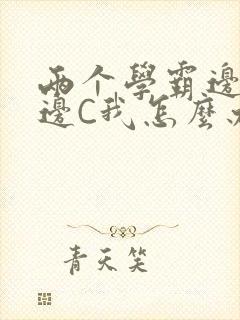 两个學霸邊
邊C我怎麼
青天笑